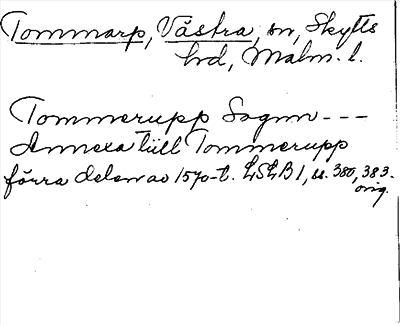 Tommarp, Västra, sn, Skytts
hd, Malm. l.
Tommerupp Sognn - - -
Annexa till Tommerupp
förra delen av 1570-t. LSLB 1, s. 380, 383.
orig.